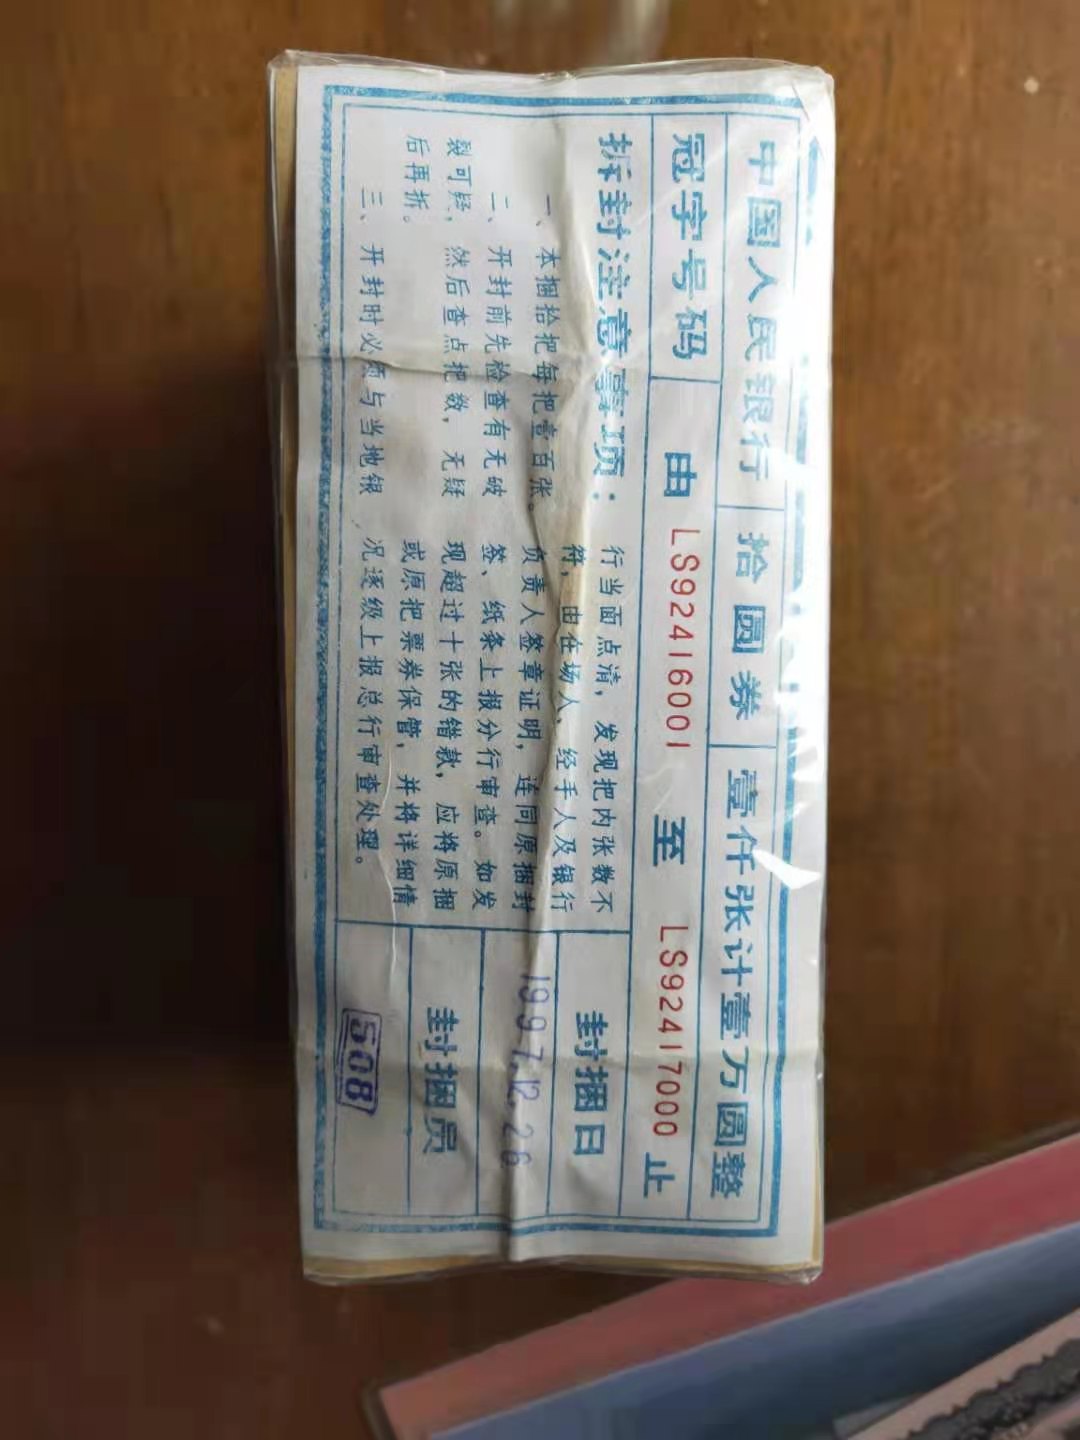 中国人民银行 拾圆券 壹仟张计壹万圆整
冠字号码 由 LS92416001 至 LS92417000 止
拆封注意事项：
一、本捆拾把每把壹百张。
二、开封前先检查有无破
裂可疑，然后查点把数，无疑
后再拆。
三、开封时必须与当地银
行当面点清，发现把内张数不
符，由在场人、经手人及银行
负责人签章证明，连同原捆封
签、纸条上报分行审查。如发
现超过十张的错款，应将原捆
或原把票券保管，并将详细情
况逐级上报总行审查处理。
封捆日
1997.12.26
封捆员
508